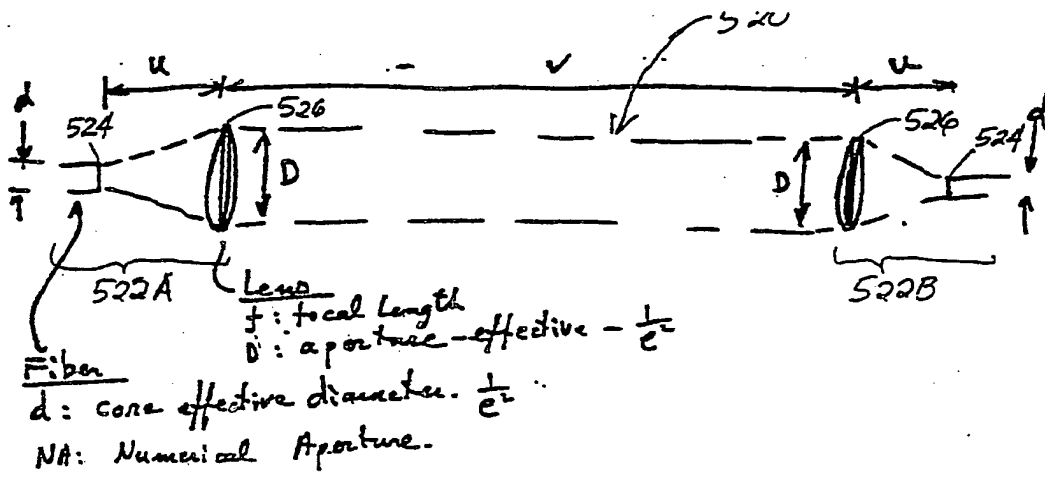 520
u v u
d 524 526 526 524 d
D D
522A 522B
Lens
f: focal Length
D: aperture-effective - 1/e²
Fiber
d: core effective diameter. 1/e²
NA: Numerical Aperture.